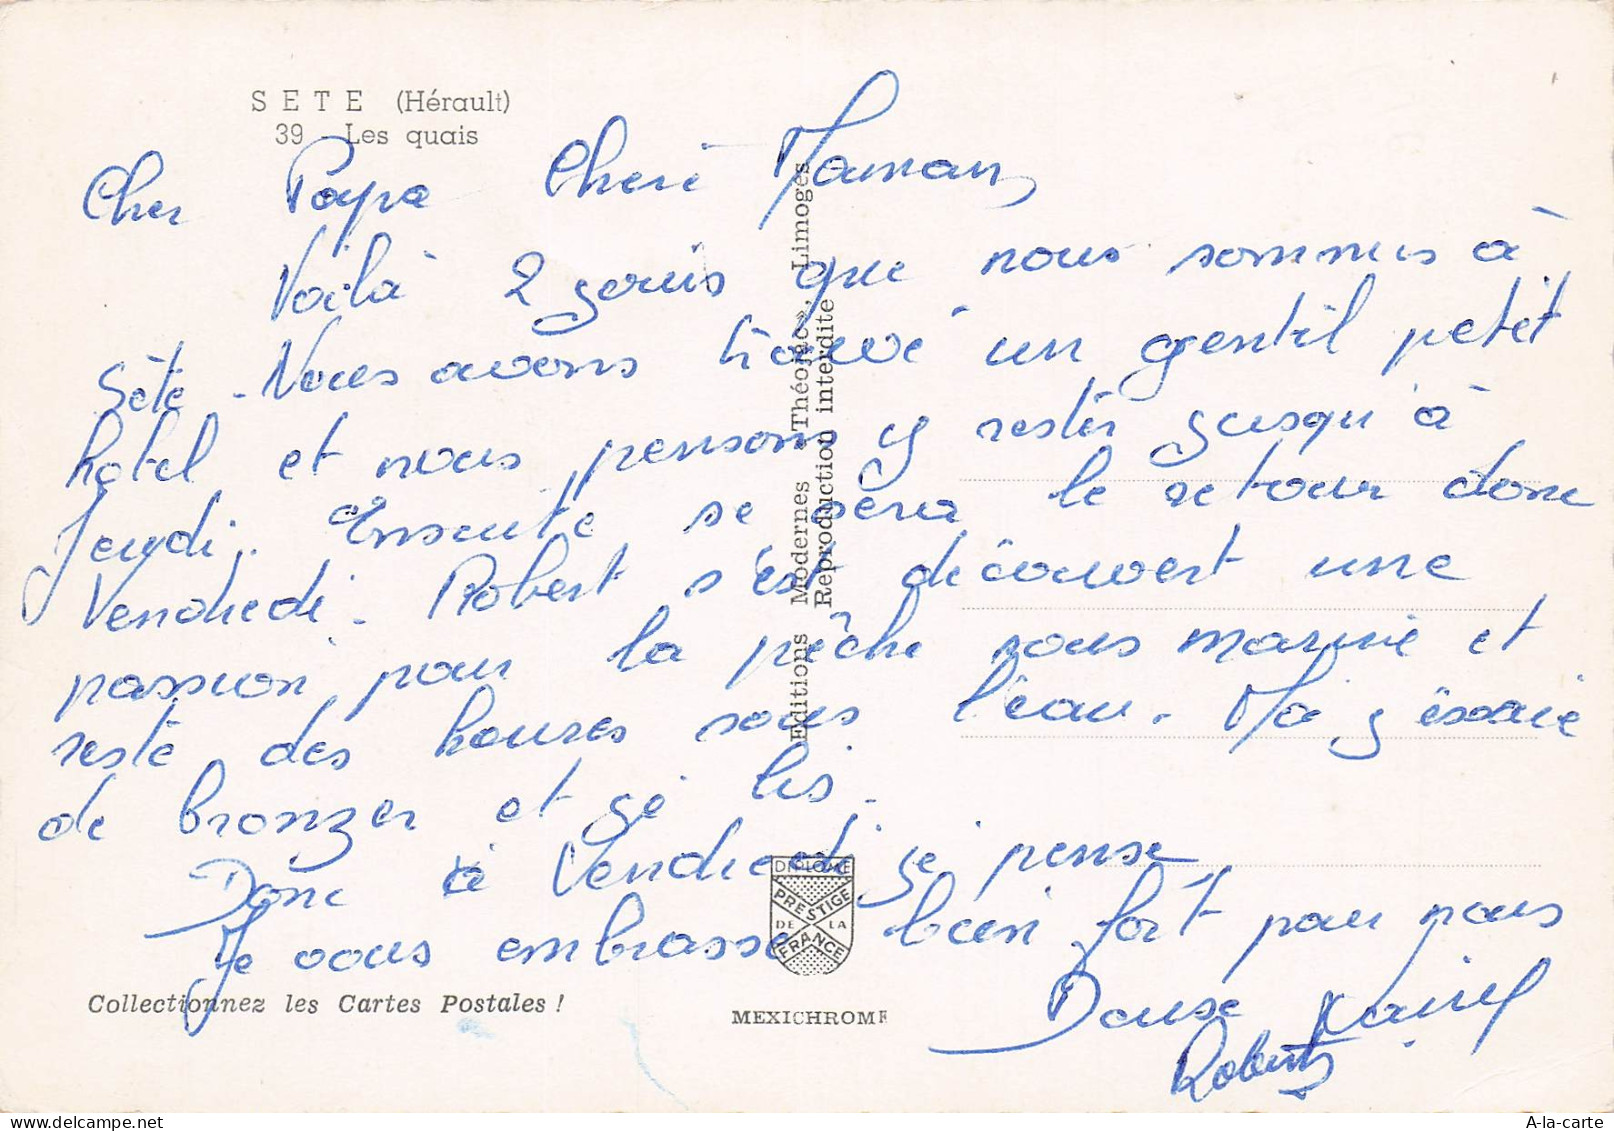 SETE (Hérault)
39 Les quais
Cher Papa Cheré Maman,
Voilà 2 jours que nous sommes à
Sète. Nous avons trouvé un gentil petit
hotel et nous pensons y rester jusqu'à
Jeudi. Ensuite se sera le retour donc
Vendredi. Robert s'est découvert une
passion pour la pêche sous marine et
reste des heures sous l'eau. Moi j'éssaie
de bronzer et je lis.
Donc à Vendredi je pense
Je vous embrasse bien fort pour nous
Danse
Robert
Editions Modernes «Théojac», Limoges
Reproduction interdite
DIPLOME
PRESTIGE
DE LA
FRANCE
Collectionnez les Cartes Postales !
MEXICHROME
A-la-carte